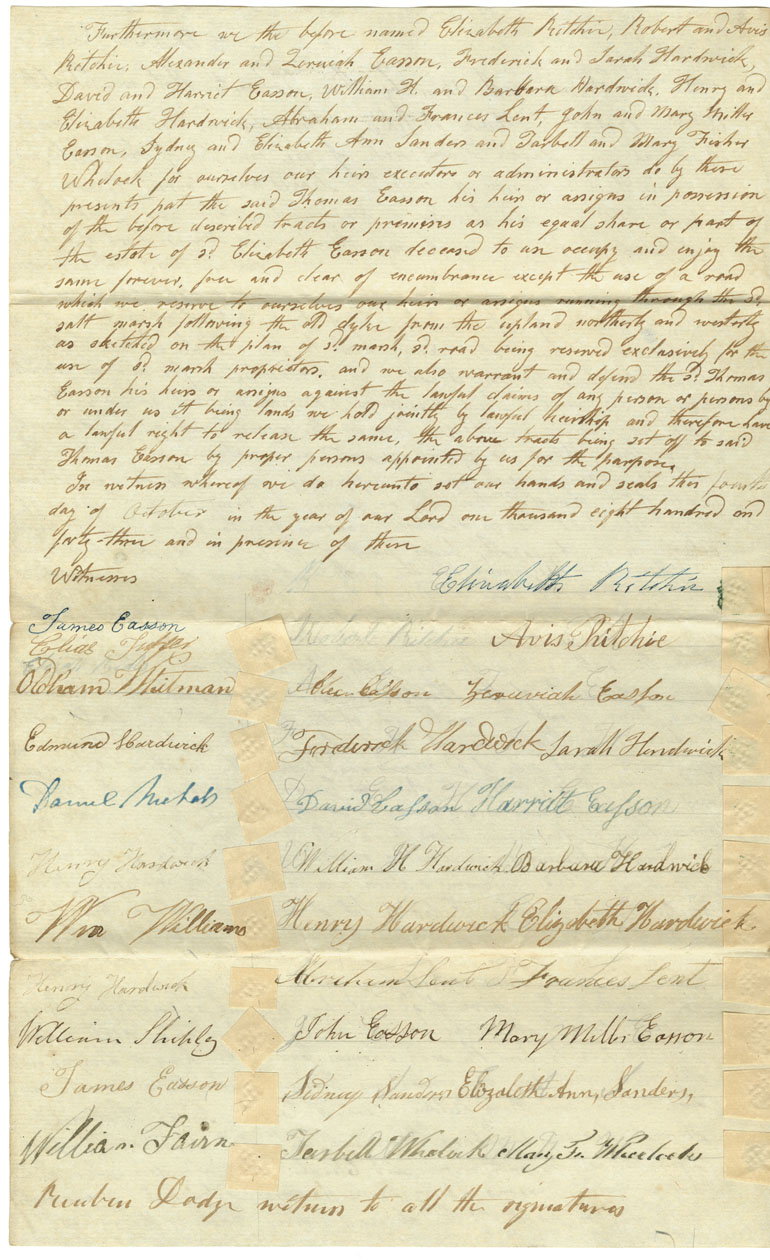 Furthermore we the before named Elizabeth Ritchie, Robert and Avis
Ritchie, Alexander and Zerviah Easson, Frederick and Sarah Hardwick,
David and Harriet Easson, William H. and Barbara Hardwick, Henry and
Elizabeth Hardwick, Abraham and Frances Lent, John and Mary Miller
Easson, Sydney and Elizabeth Ann Sanders and Tarbell and Mary Fisher
Whelock for ourselves our heirs executors or administrators do by these
presents put the said Thomas Easson his heirs or assigns in possession
of the before described tracts or premises as his equal share or part of
the estate of sd. Elizabeth Easson deceased to use occupy and enjoy the
same forever, free and clear of encumbrance except the use of a road
which we reserve to ourselves our heirs or assigns running through the sd.
salt marsh following the old dyke from the upland northerly and westerly
as sketched on the plan of sd. marsh, sd. road being reserved exclusively for the
use of sd. marsh proprietors. and we also warrant and defend the sd. Thomas
Easson his heirs or assigns against the lawful claims of any person or persons by
or under us it being lands we hold jointly by lawful heirship and therefore have
a lawful right to release the same, the above tracts being set off to said
Thomas Easson by proper persons appointed by us for the purpose.
In witness whereof we do hereunto set our hands and seals this fourth
day of October in the year of our Lord one thousand eight hundred and
forty-three and in presence of these
Witnesses
Elizabeth Ritchie
James Easson
Avis Ritchie
Oldham Whitman
Alex Easson Zeruviah Easson
Edmund Hardwick
Frederick Hardwick Sarah Hardwick
David Easson Harriett Easson
Henry Hardwick
William H Hardwick Barbara Hardwick
Wm Williams
Henry Hardwick Elizabeth Hardwick.
Henry Hardwick
Abraham Lent Frances Lent
William Shipley
John Easson Mary Miller Easson
James Easson
Sidney Sanders Elizabeth Ann, Sanders,
William Fairn
Tarbell Whelock Mary Fr Wheelock
Reuben Dodge witness to all the signatures